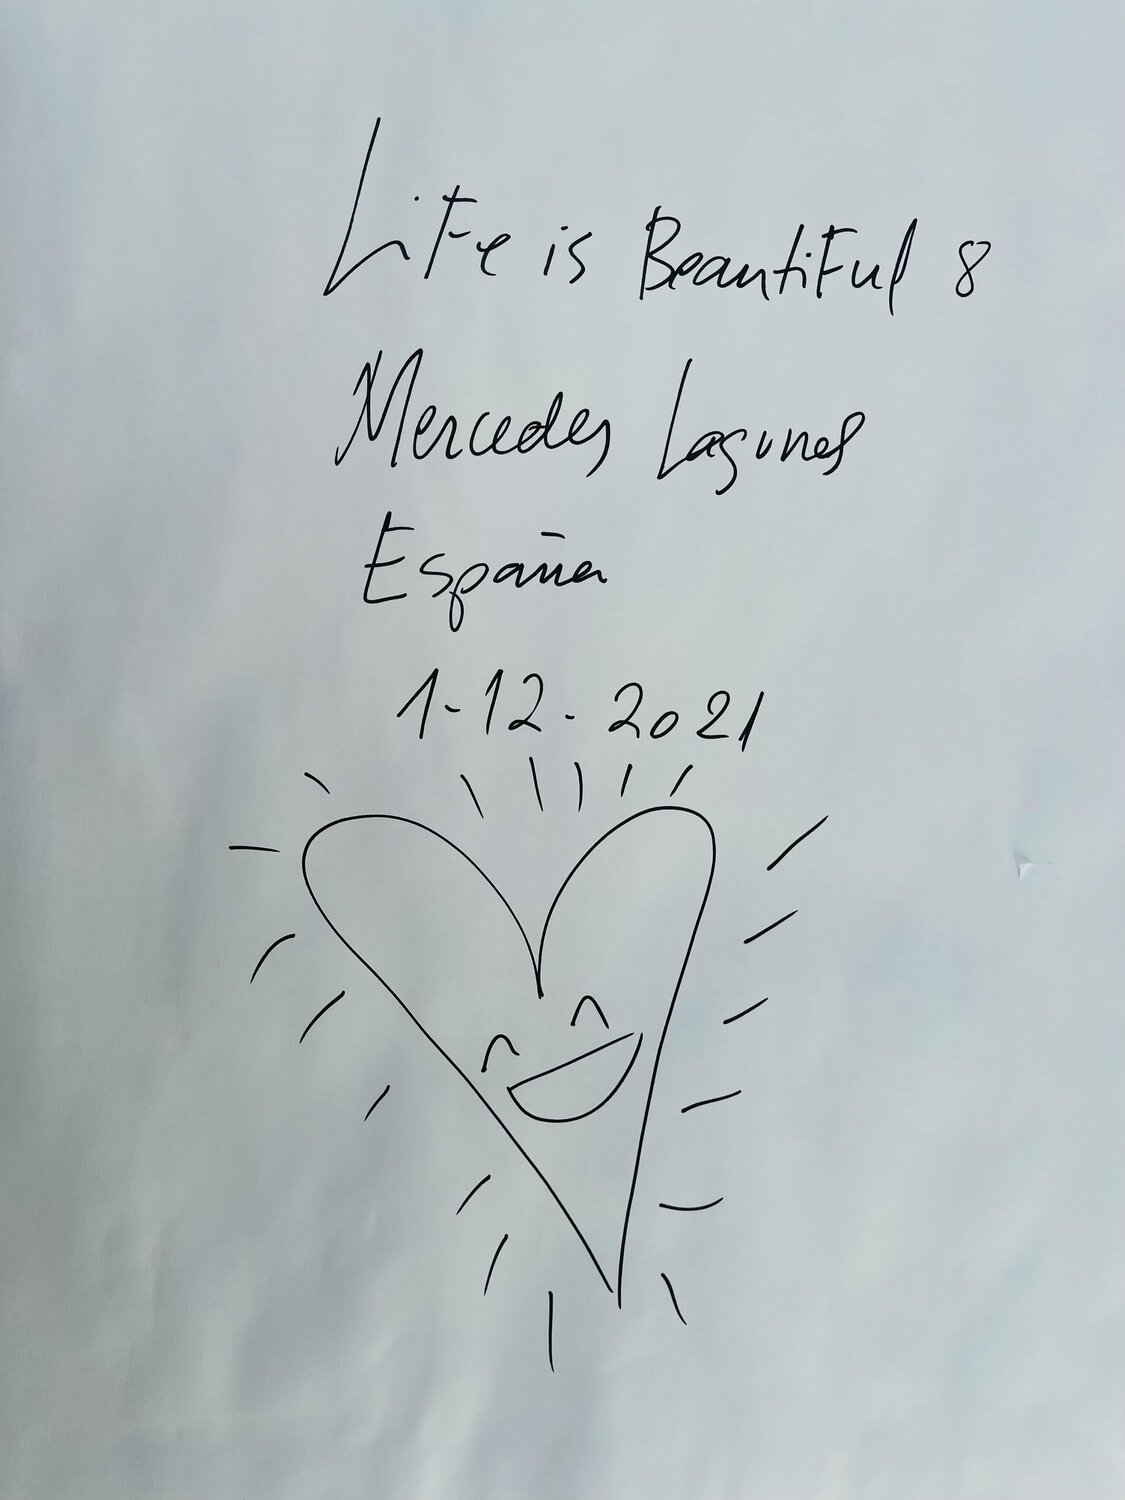 LiFe is BeautiFul 8
Mercedes Lagunas
España
1-12-2021